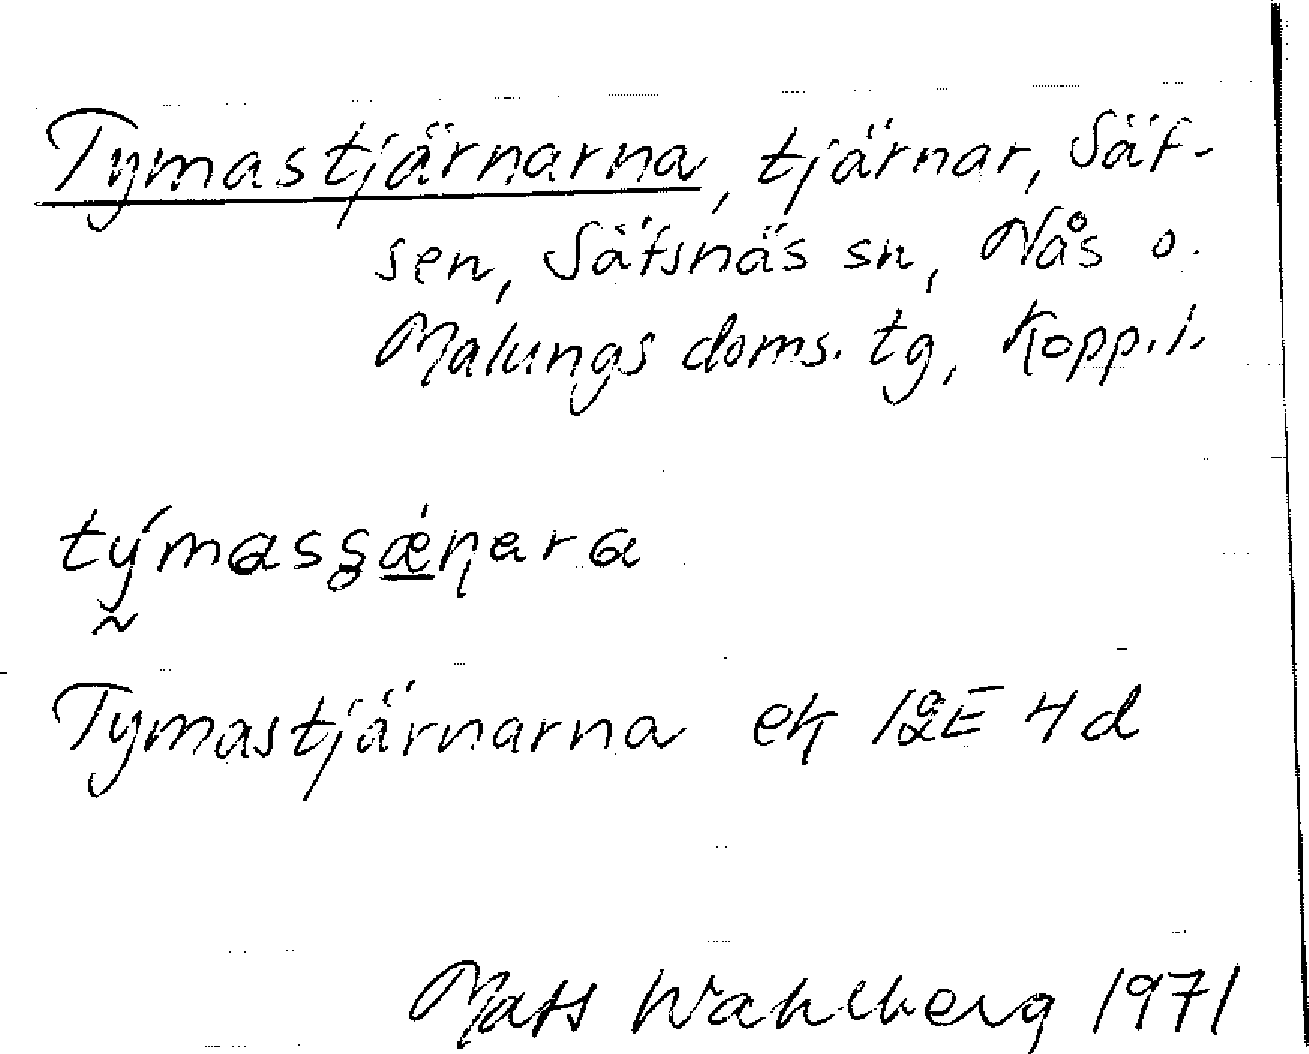 Tymastjärnarna, tjärnar, Säf-
sen, Säfsnäs sn, Nås o.
Malungs doms. tg, Kopp. l.
Tymastjärnarna ek 12E 4d
Mats Wahlberg 1971